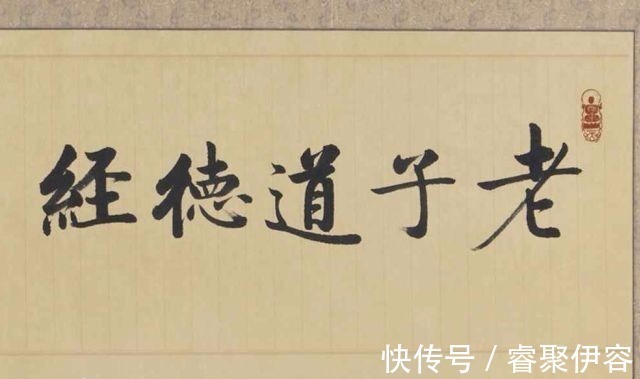 老子道德経
快传号／睿聚伊容